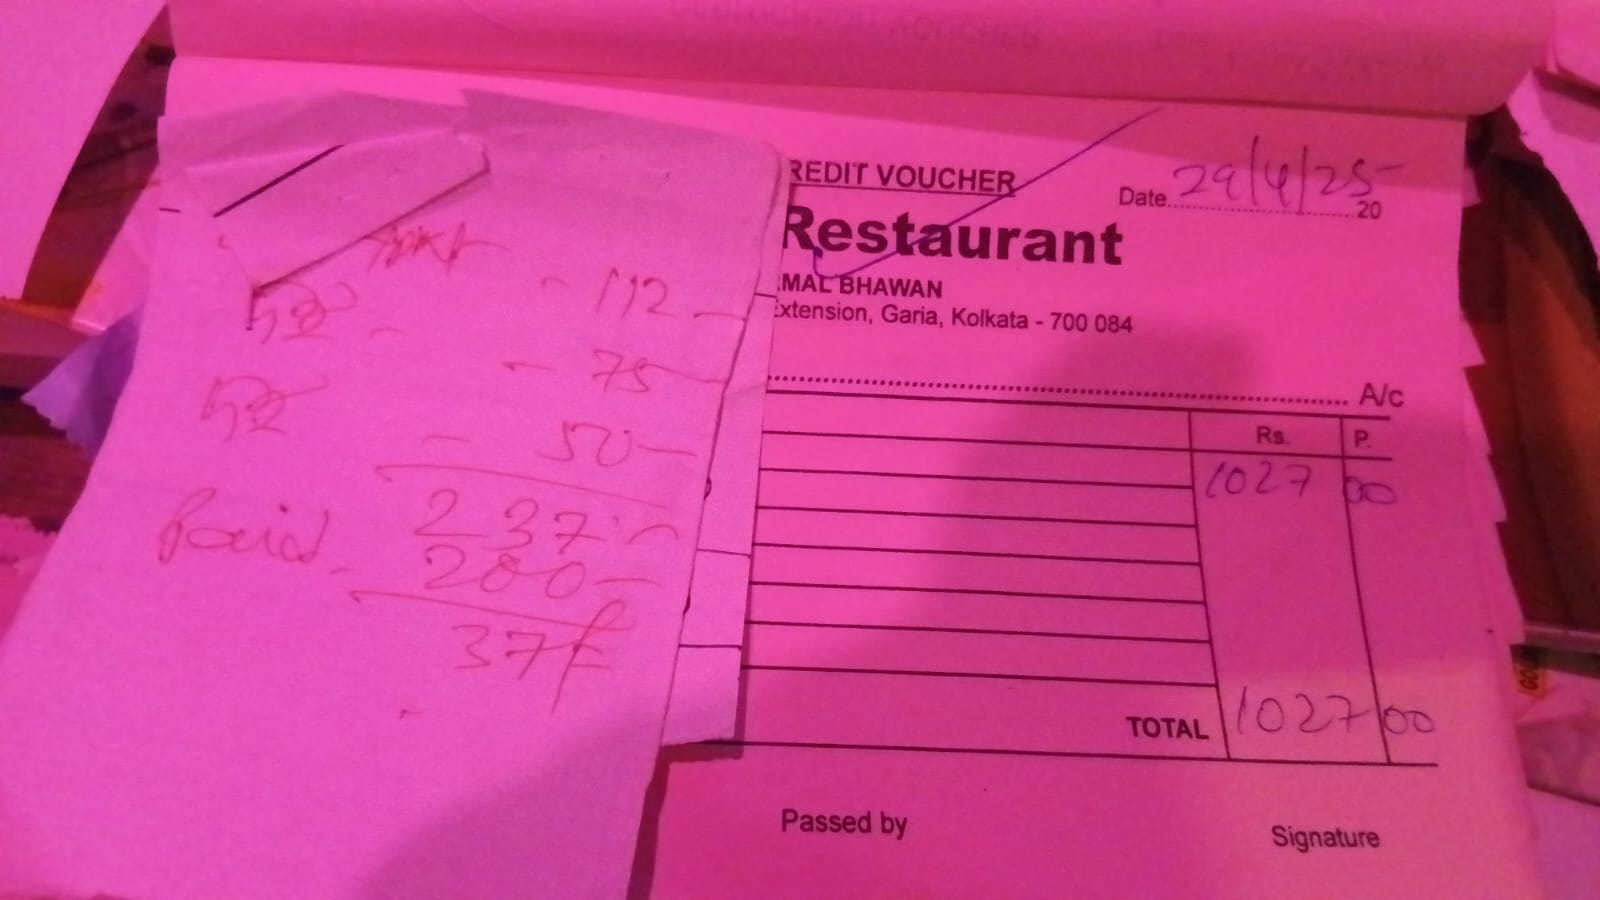 - 112 -
- 75 -
- 50 -
237 -
Paid - 200 -
37/-
REDIT VOUCHER
Date 29/4/25 20
Restaurant
MAL BHAWAN
Extension, Garia, Kolkata - 700 084
A/c
Rs. P.
1027 00
TOTAL 1027 00
Passed by Signature